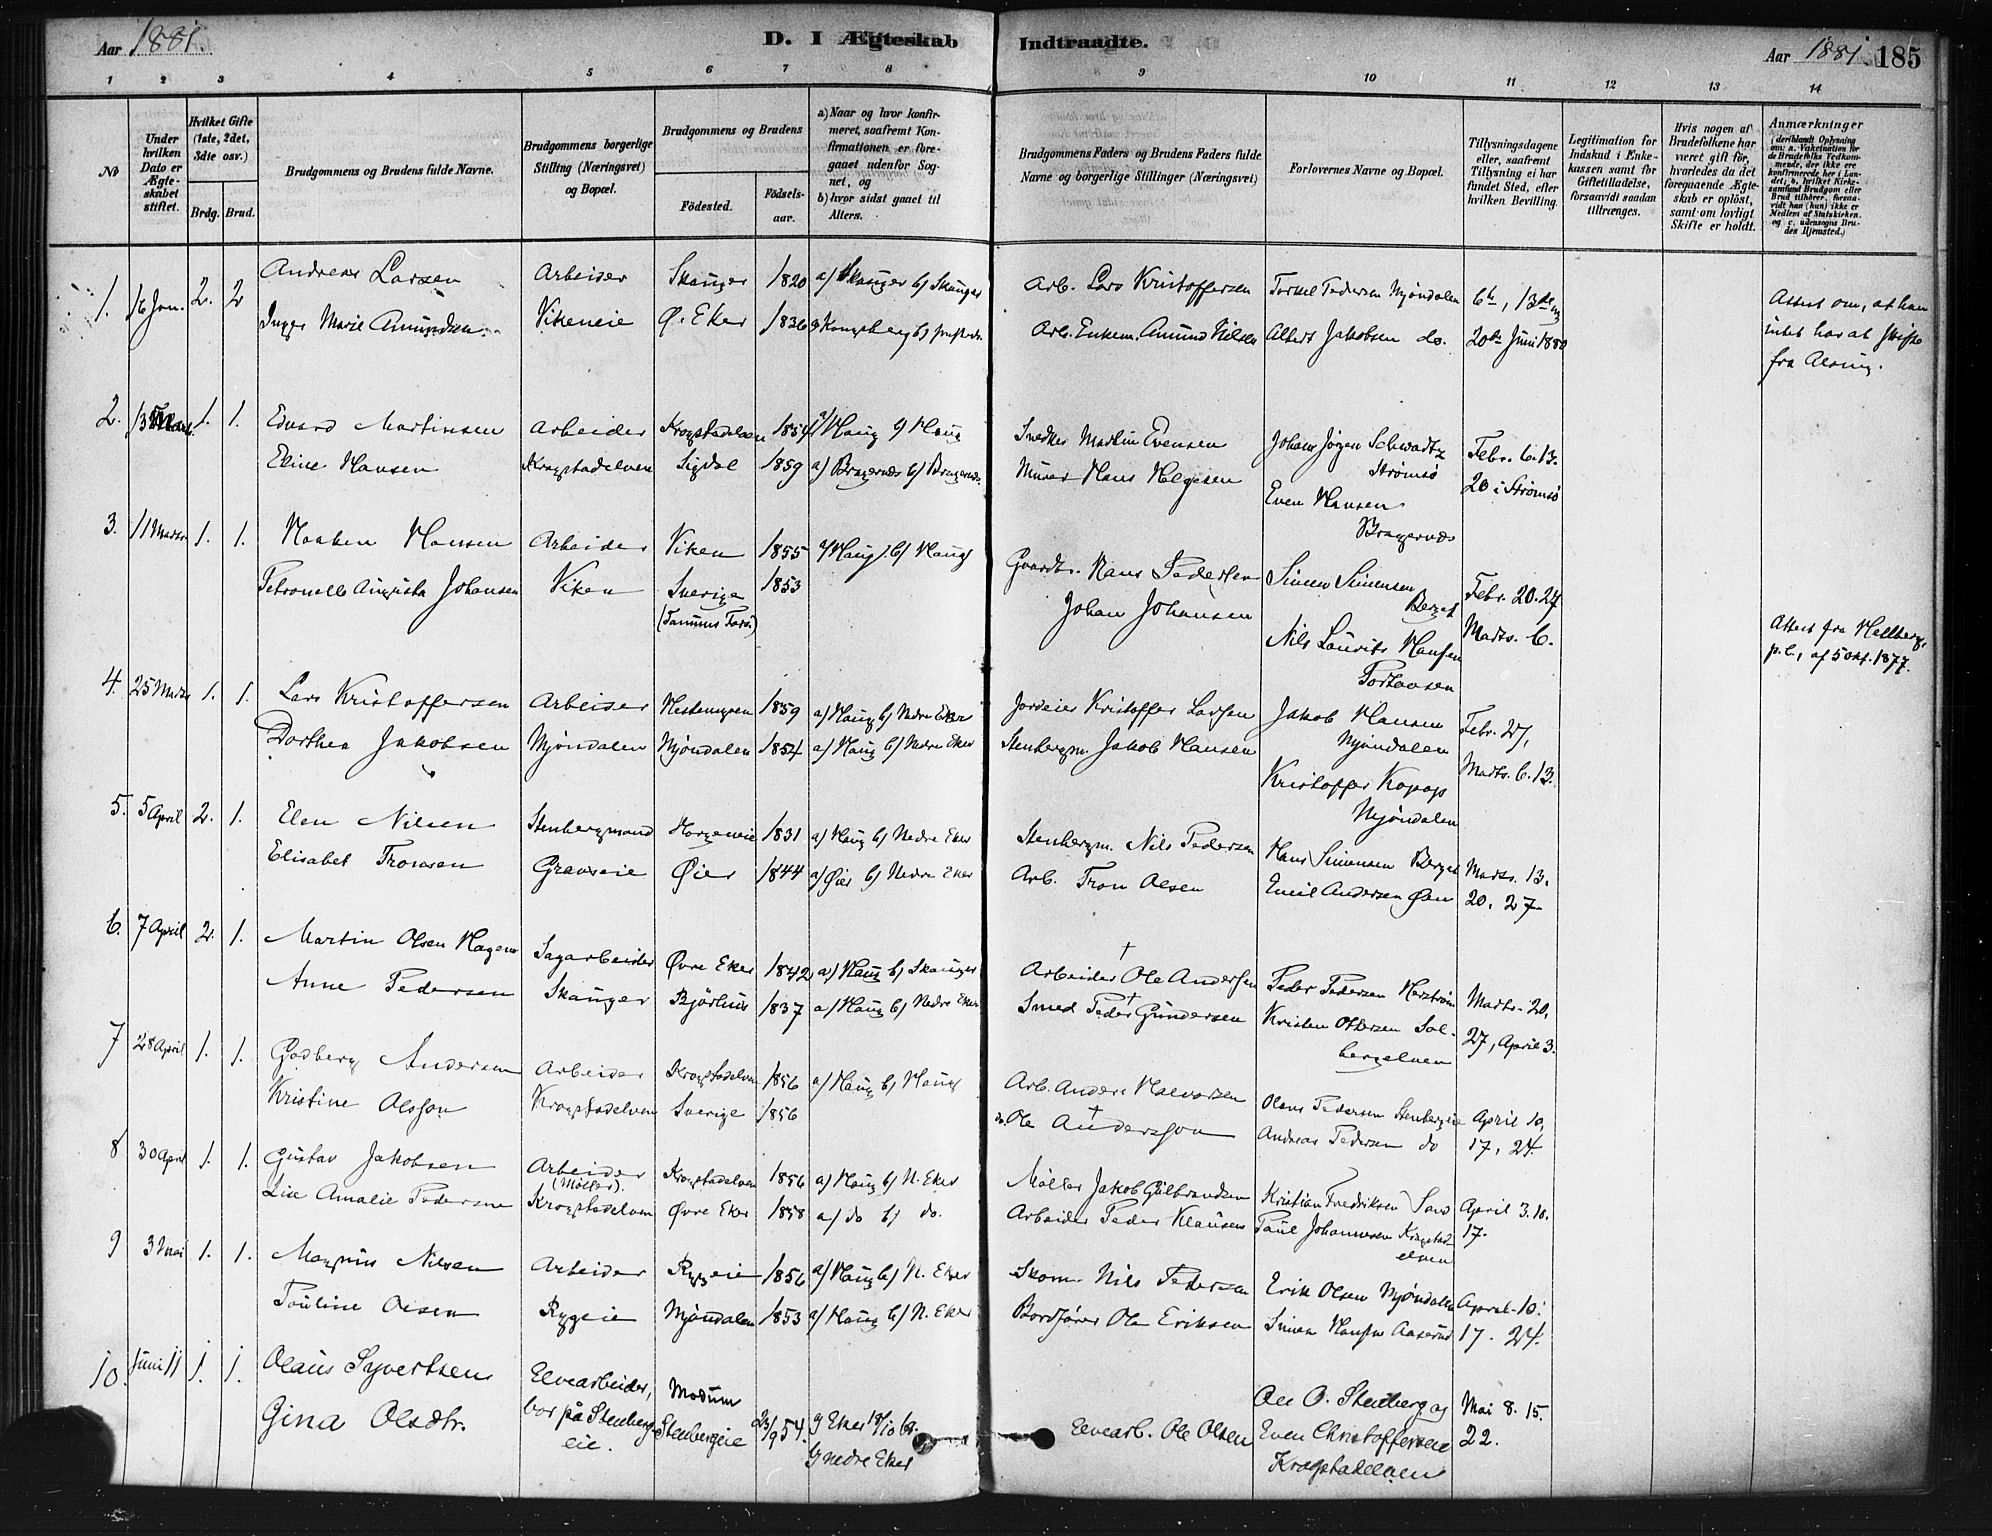 Aar 1881.
D. I Ægteskab Indtraadte.
Aar 1881. 185
1 2 3 4 5 6 7 8 9 10 11 12 13 14
No
Under hvilken Dato er Ægteskabet stiftet.
Hvilket Gifte (1ste, 2det, 3die osv.)
Brdg. Brud.
Brudgommens og Brudens fulde Navne.
Brudgommens borgerlige Stilling (Næringsvei) og Bopæl.
Brudgommens og Brudens
Fødested.
Fødselsaar.
a) Naar og hvor konfirmeret, saafremt Konfirmationen er foregaaet udenfor Sognet, og
b) hvor sidst gaaet til Alters.
Brudgommens Faders og Brudens Faders fulde Navne og borgerlige Stillinger (Næringsvei)
Forlovernes Navne og Bopæl.
Tillysningsdagene eller, saafremt Tillysning ei har fundet Sted, efter hvilken Bevilling.
Legitimation for Indskud i Enkekassen samt for Giftetilladelse, forsaavidt saadan tiltrænges.
Hvis nogen af Brudefolkene har været gift før, hvorledes da det foregaaende Ægteskab er opløst, samt om lovligt Skifte er holdt.
Anmærkninger
(deriblandt Oplysning om: a. Vaksination for de Brudefolks Vedkommende, der ikke ere konfirmerede her i Landet, b. hvilket Kirkesamfund Brudgom eller Brud tilhører, forsaavidt han (hun) ikke er Medlem af Statskirken, og c. udensogns Brudes Hjemsted.)
1. 16 Jan. 2. 2 Andreas Larsen Arbeider Skauger 1820 a) Skauger b) Skauger Arb. Lars Kristoffersen Torkel Pedersen Mjøndalen 6te, 13de og
Inger Marie Amundsen Vikeneie Ø. Eker 1836 Kongsberg b) Arb. Enkem. Amund Nilsen Albert Jakobsen do. 20de Juni 1880
Attest om, at han
intet har at skifte
fra
2. 1. 1. Edvard Martinsen Arbeider Krogstadelven 1854 a) Haug b) Haug Snedker Martin Evensen Johans Jørgen Schwartz Strømsø Febr. 6. 13.
Eline Hansen Krogstadelven Sigdal 1859 a) Bragernæs b) Bragernæs. Murer Hans Helgesen Even Hansen Bragernæs 20 i Strømsø
3. 11 Marts. 1. 1. Haaken Hansen Arbeider Viken 1855 a) Haug. b) Haug Gaardbr. Hans Pedersen Simen Simensen Berget Febr. 20. 27
Petronelle Augusta Johansen Viken Sverige (Tanums Fors.) 1853 Johan Johansen Nils Laurits Hansen Marts. 6.
Attest fra
p. l., af 5 Okt. 1877.
4. 25 Marts 1. 1. Lars Kristoffersen Arbeider Hestemyren 1859 a) Haug b) Nedre Eker Jordeier Kristoffer Larsen Jakob Hansen Mjøndalen Febr. 27,
Dorthea Jakobsen Mjøndalen Mjøndalen 1854 a) Haug b) Nedre Eker Stenbergm. Jakob Hansen Kristoffer Kopop Mjøndalen Marts. 6. 13.
5. 5 April 2. 1. Elen Nilsen Stenbergmand Horgeneie 1831 a) Haug b) Nedre Eker Stenbergm. Nils Pedersen Hans Simensen Berget Marts. 13.
Elisabet Tronsen Graveseie Øier 1844 a) Øier b) Nedre Eker Arb. Tron Olsen Emil Andersen Øen 20. 27
6. 7 April 2. 1. Martin Olsen Hagen Sagarbeider Øvre Eker 1842 a) Haug b) Skauger Arbeider † Ole Andersen Peder Pedersen Herstrøm Marts. 20.
Anne Pedersen Skauger Bjørhus 1837 a) Haug b) Nedre Eker Smed † Peder Gundersen Kristen Ottersen Solbergelven 27, April 3.
7 28 April 1. 1. Godberg Andersen Arbeider Krogstadelven 1856 a) Haug b) Haug Arb. Anders Halvorsen Olaus Pedersen Stenbergeie April 10,
Kristine Olsson Krogstadelven Sverige 1856 do. † Ole Andersson Andreas Pedersen do 17, 24.
8 30 April 1. 1. Gustav Jakobsen Arbeider (Møller). Krogstadelven 1856 a) Haug b) N. Eker Møller Jakob Gulbrandsen Kristian Fredriksen Sand April 3. 10.
Lise Amalie Pedersen Krogstadelven Øvre Eker 1858 a) do b) do. Arbeider Peder Klausen Paul Johannesen Krogstadelven 17.
9 3 Mai 1. 1. Magnus Nilsen Arbeider Ryggeie 1856 a) Haug b) N. Eker Skom. Nils Pedersen Erik Olsen Mjøndalen April 10.
Pauline Olsen Rygeie Mjøndalen 1853 a) Haug b) N. Eker Bordfører Ole Eriksen Simen Hansen Aaserud 17. 24.
10. Juni 11 1. 1. Olaus Syvertsen Elvearbeider, Modum Ole O. Stenberg og Mai 8. 15.
Gina Olsdtr. bor på Stenbergeie. Stenbergeie 23/9 54. Eker b) nedre Eker Elvearb. Ole Olsen Even Christoffersen Krogstadelven 22.